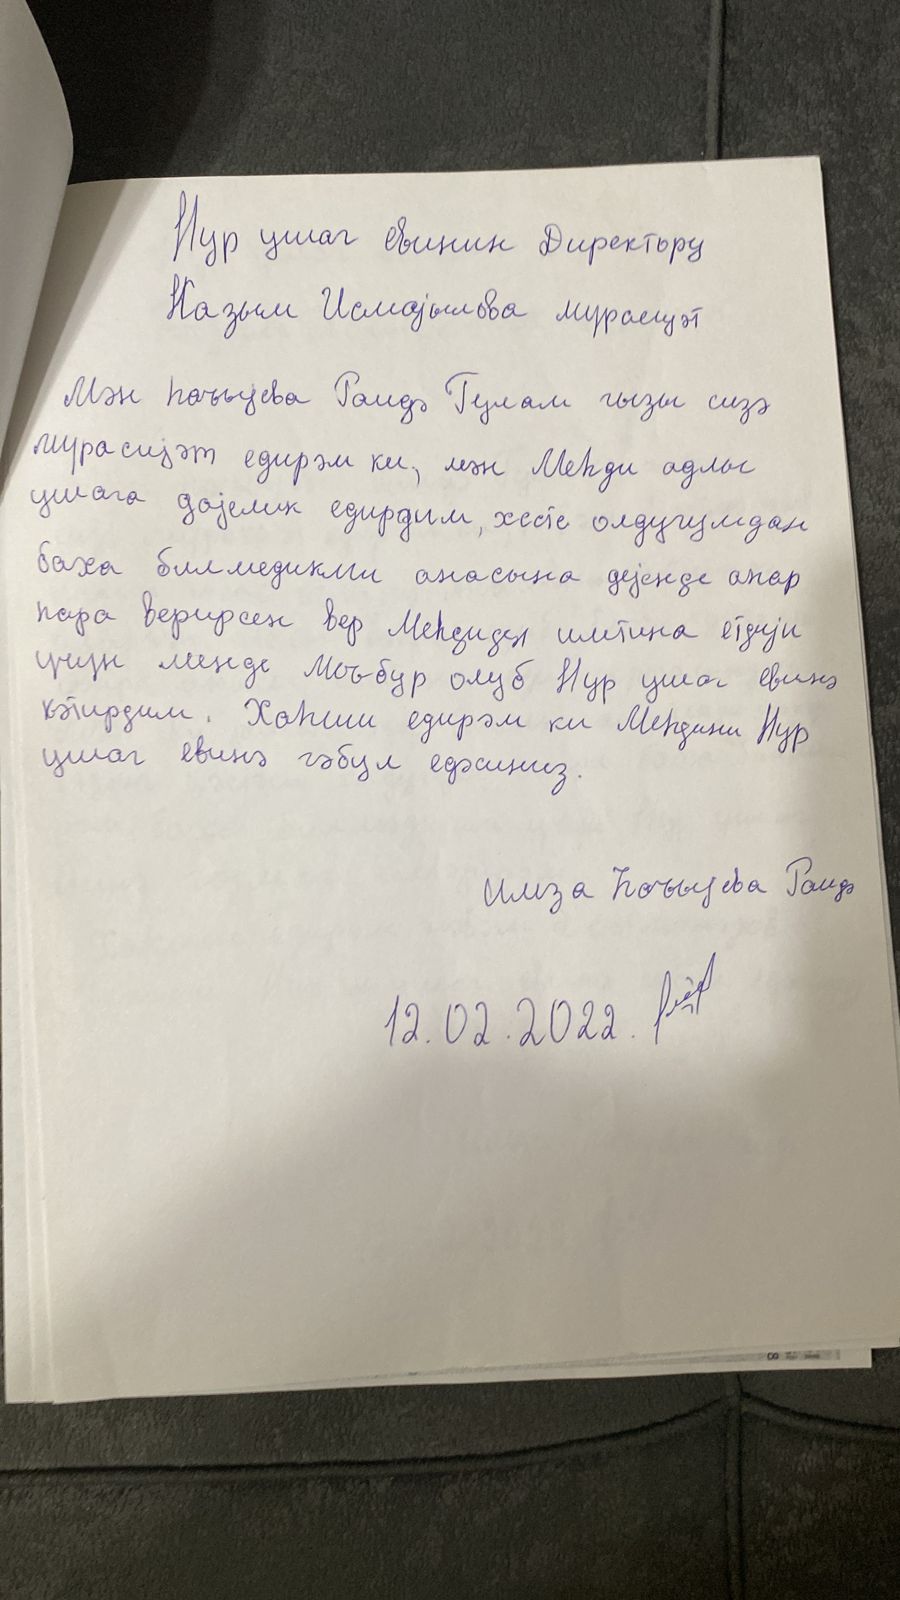 Нур ушаг евинин Директору
Казым Исмајылова мурасиət
Мəн Һачыјева Раидə Гулам гызы сизə
мурасијəт едирəм ки, мəн Меһди адлы
ушага дајелик едирдим, хесте олдугумдан
баха билмедикми анасына дејенде апар
пара верирсен вер Меһдиден имтина етдији
учун менде Мəчбур олуб Нур ушаг евинə
кəтирдим. Хаһиш едирəм ки Меһдини Нур
ушаг евинə гəбул едəсиниз.
имза Һачыјева Раидə
12.02.2022.